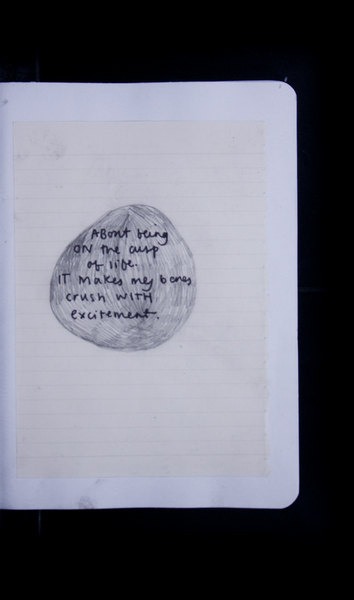 ABOUT being
ON the cusp
of life.
IT makes my bones
crush WITH
excitement.